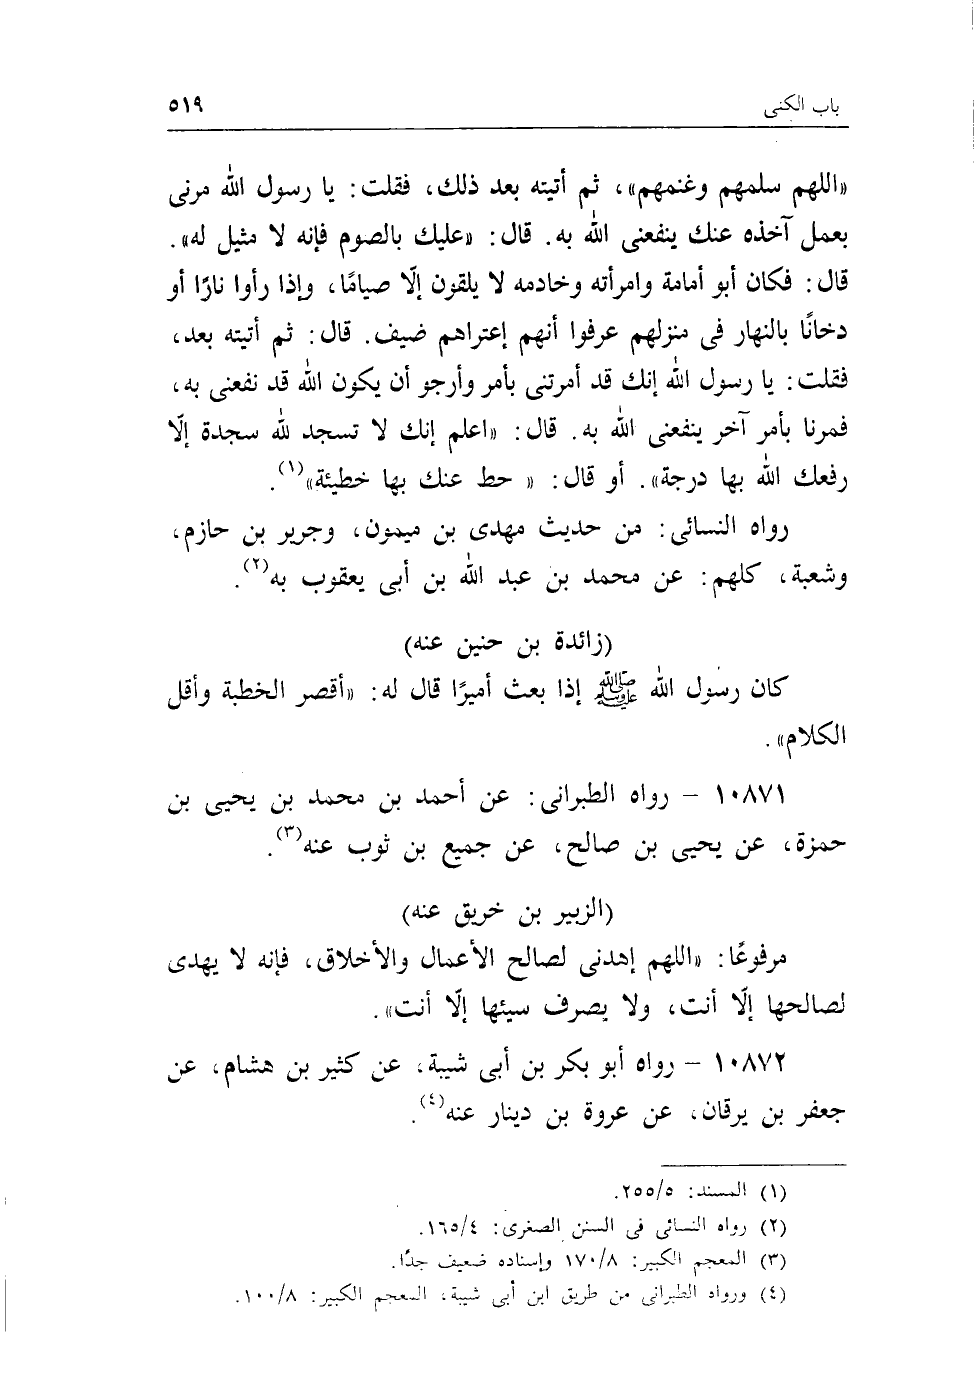 باب الكنى ٥١٩
«اللهم سلمهم وغنمهم»، ثم أتيته بعد ذلك، فقلت: يا رسول الله مرنى
بعمل آخذه عنك ينفعنى الله به. قال: «عليك بالصوم فإنه لا مثيل له».
قال: فكان أبو أمامة وامرأته وخادمه لا يلقون إلّا صيامًا، وإذا رأوا نارًا أو
دخانًا بالنهار فى منزلهم عرفوا أنهم إعتراهم ضيف. قال: ثم أتيته بعد،
فقلت: يا رسول الله إنك قد أمرتنى بأمر وأرجو أن يكون الله قد نفعنى به،
فمرنا بأمر آخر ينفعنى الله به. قال: «اعلم إنك لا تسجد لله سجدة إلّا
رفعك الله بها درجة». أو قال: « حط عنك بها خطيئة»(١).
رواه النسائى: من حديث مهدى بن ميمون، وجرير بن حازم،
وشعبة، كلهم: عن محمد بن عبد الله بن أبى يعقوب به(٢).
(زائدة بن حنين عنه)
كان رسول الله ﷺ إذا بعث أميرًا قال له: «أقصر الخطبة وأقل
الكلام».
١٠٨٧١ – رواه الطبرانى: عن أحمد بن محمد بن يحيى بن
حمزة، عن يحيى بن صالح، عن جميع بن ثوب عنه(٣).
(الزبير بن خريق عنه)
مرفوعًا: «اللهم إهدنى لصالح الأعمال والأخلاق، فإنه لا يهدى
لصالحها إلّا أنت، ولا يصرف سيئها إلّا أنت».
١٠٨٧٢ – رواه أبو بكر بن أبى شيبة، عن كثير بن هشام، عن
جعفر بن يرقان، عن عروة بن دينار عنه(٤).
(١) المسند: ٢٥٥/٥.
(٢) رواه النسائى فى السنن الصغرى: ١٦٥/٤.
(٣) المعجم الكبير: ١٧٠/٨ وإسناده ضعيف جدًا.
(٤) ورواه الطبرانى من طريق ابن أبى شيبة، المعجم الكبير: ١٠٠/٨.